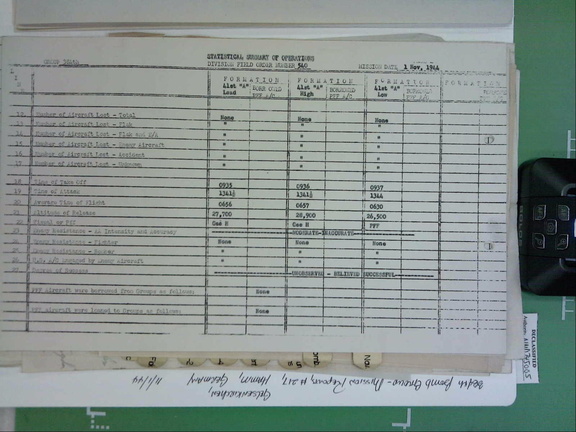 STATISTICAL SUMMARY OF OPERATIONS
DIVISION FIELD ORDER NUMBER 540 MISSION DATE 1 Nov. 1944
FORMATION FORMATION FORMATION FORMATION
41st "A" Lead 41st "A" High 41st "A" Low
Number of Aircraft Lost - Total None None None
Number of Aircraft Lost - Flak " " "
Number of Aircraft Lost - Flak and E/A " " "
Number of Aircraft Lost - Enemy Aircraft " " "
Number of Aircraft Lost - Accident " " "
17 Number of Aircraft Lost - Unknown " " "
18 Time of Take Off 0935 0936 0937
19 Time of Attack 1341½ 1341½ 1344
20 Average Time of Flight 0656 0657 0630
21 Altitude of Release 27,700 28,900 26,500
22 Visual or PFF Gee H Gee H PFF
23 Enemy Resistance - AA Intensity and Accuracy MODERATE-INACCURATE
Enemy Resistance - Fighter None None None
Enemy Resistance - Bomber " " "
U.S. A/C Engaged by Enemy Aircraft " " "
Degree of Success UNOBSERVED - BELIEVED SUCCESSFUL
PFF Aircraft were borrowed from Groups as follows: None
PFF Aircraft were loaned to Groups as follows: None
DECLASSIFIED
Authority NND 745005
384th Bomb Group - Mission Reports, #217, Hamm, Germany 11/1/44
Gelsenkirchen,